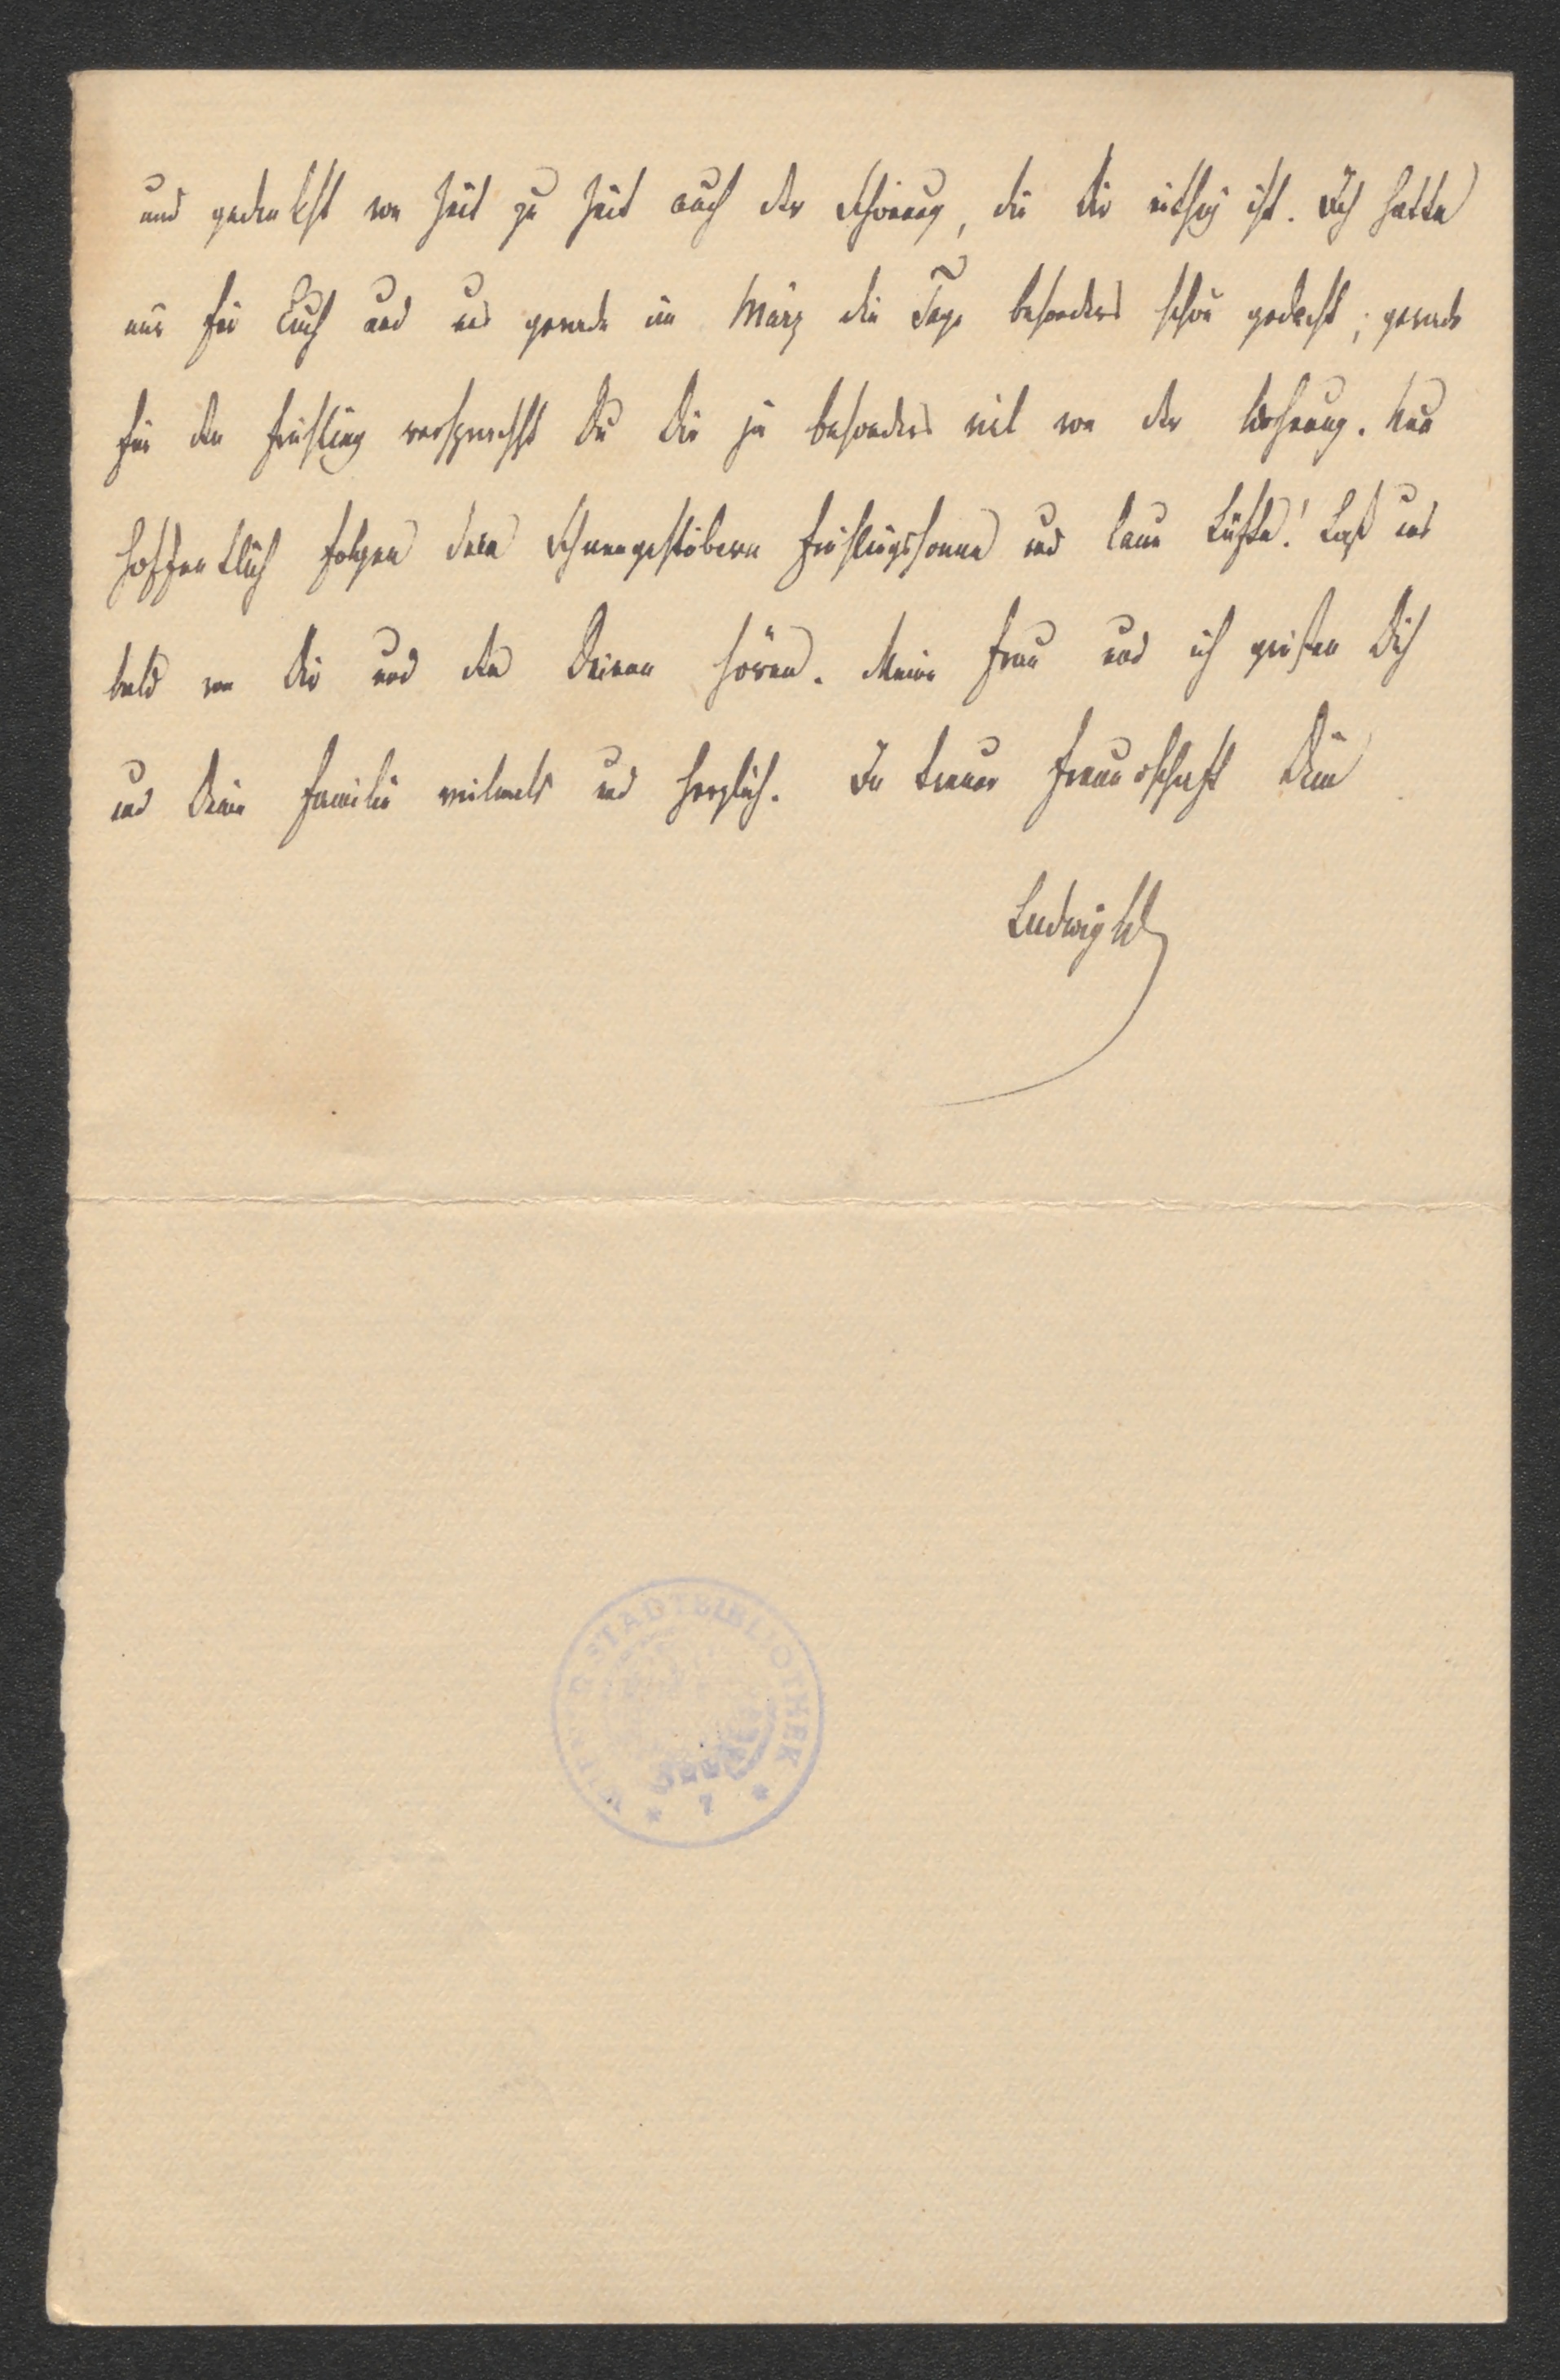 und gedenkst von Zeit zu Zeit auch der Schonung, die Dir nöthig ist. Ich hatte
mir für Euch und uns gerade im März die Tage besonders schön gedacht; gerade
für den Frühling versprachst Du Dir ja besonders viel von der Wohnung. Nun
hoffentlich folgen dem Schneegestöbern Frühlingssonne und laue Lüfte! Laß uns
bald von Dir und den Deinen hören. Meine Frau und ich grüßen Dich
und Deine Familie vielmals und herzlich. In treuer Freundschaft Dein
Ludwig
STADTBIBLIOTHEK
* 7 *